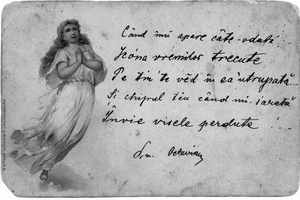 Când îmi apare câte-odată
Icóna vremilor trecute
Pe tine te věd în ea întrupată...
Și chipul těu când mi-arată
Învie visele perdute!...